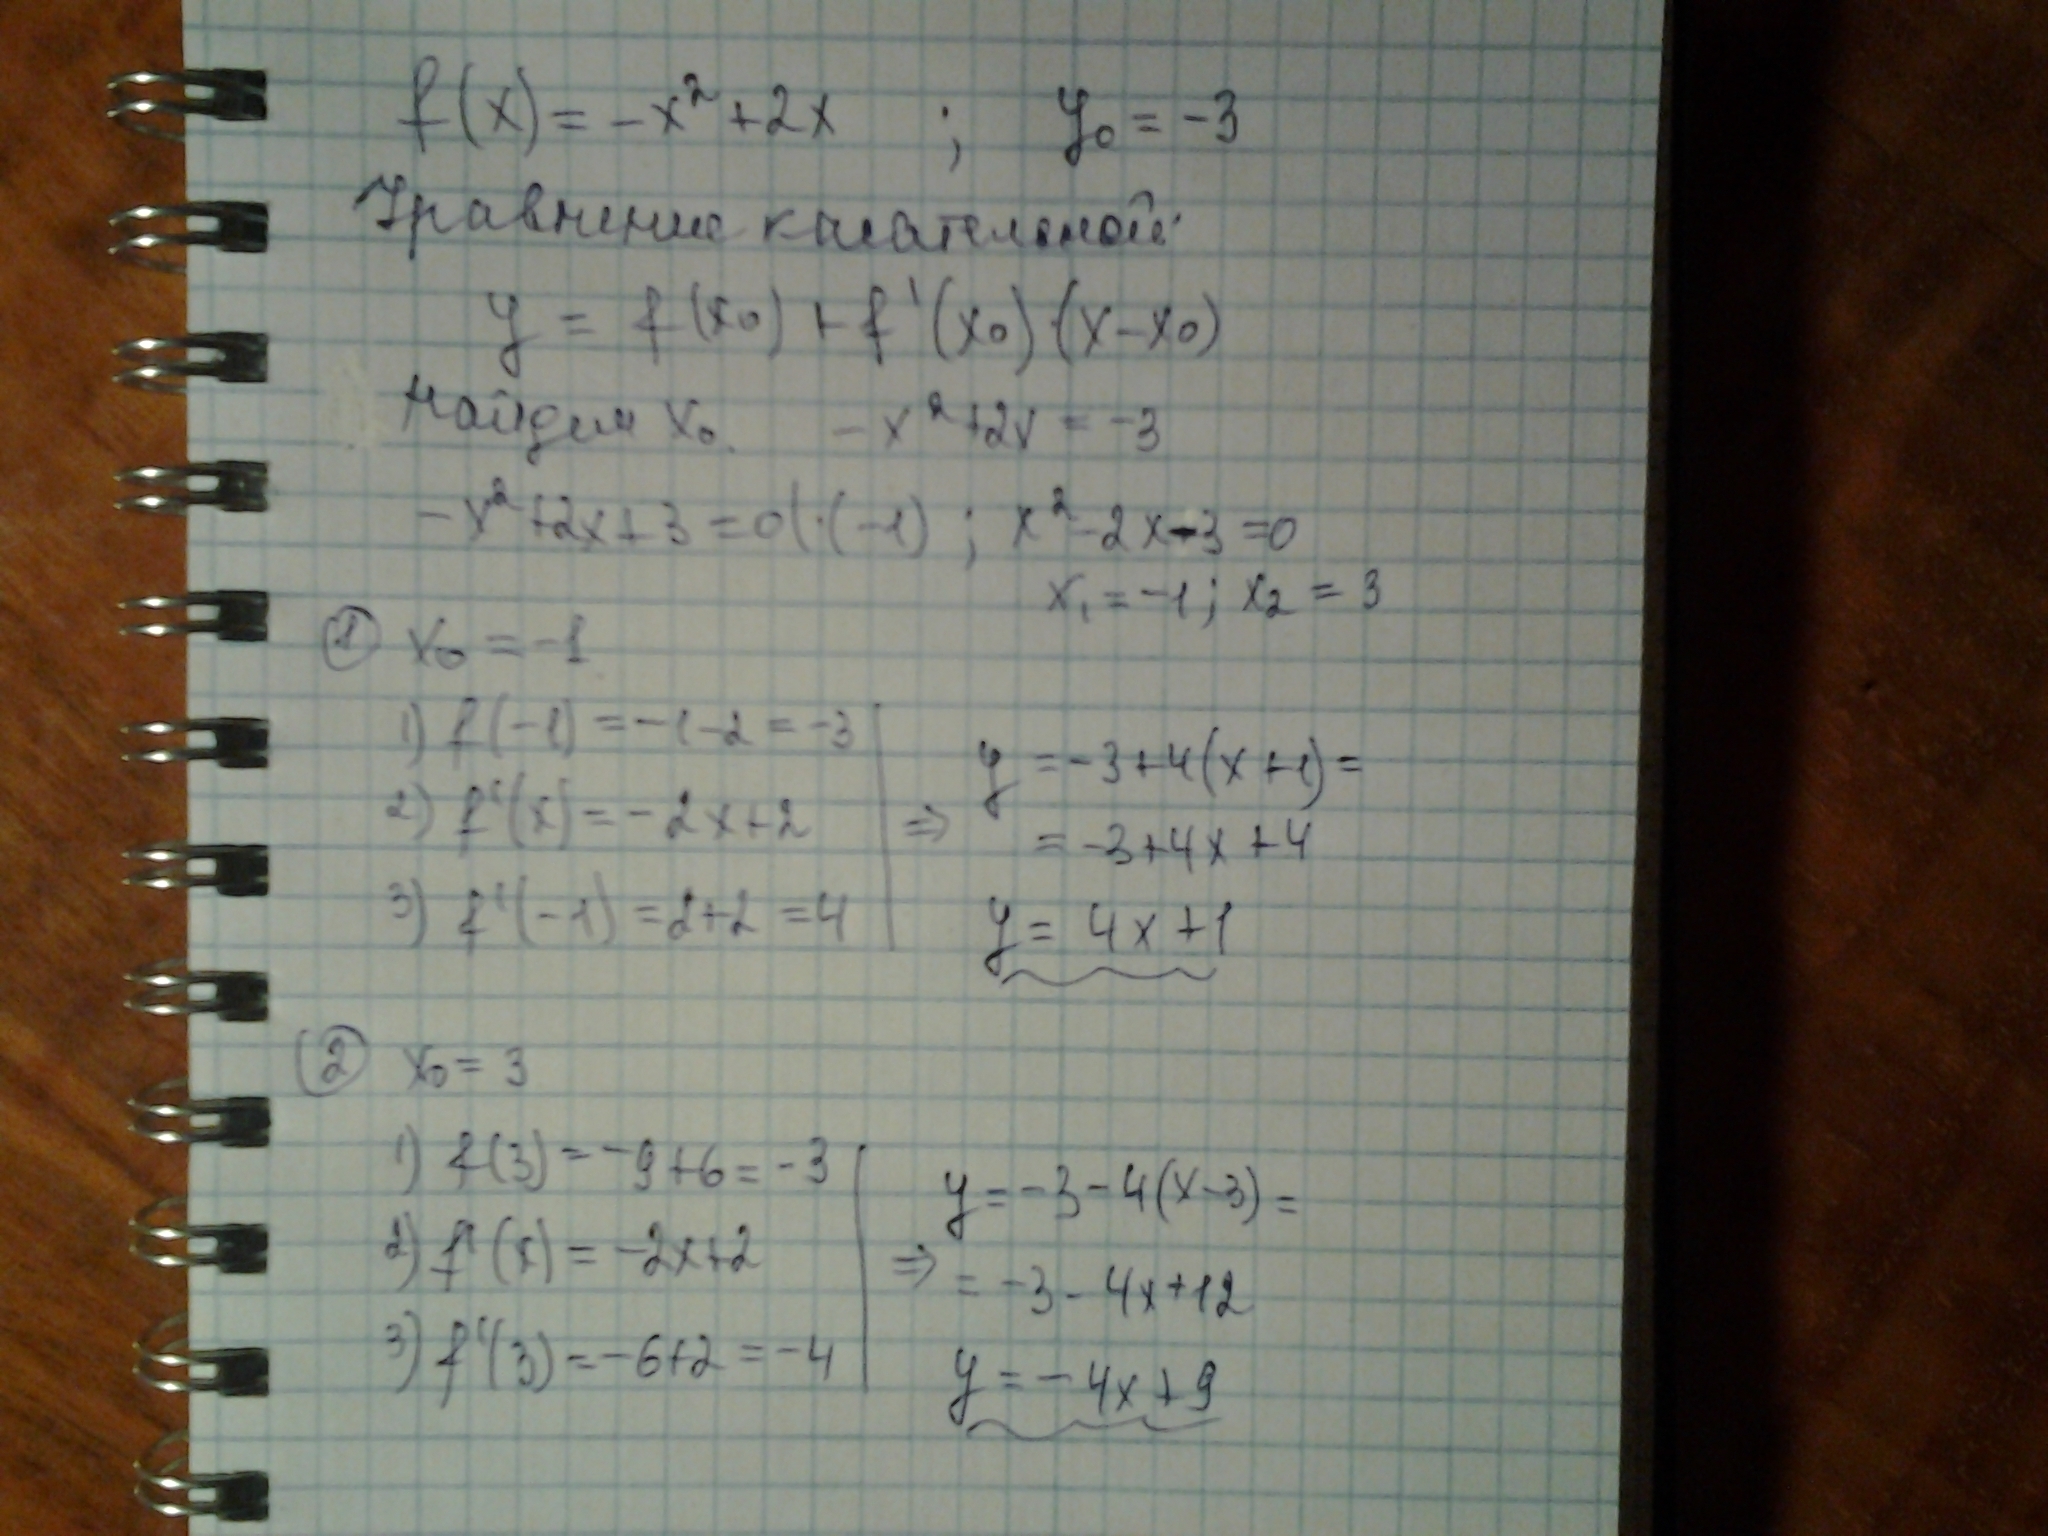 f(x) = -x² + 2x ; y₀ = -3
Уравнение касательной:
y = f(x₀) + f'(x₀)·(x-x₀)
Найдем x₀. -x²+2x = -3
-x²+2x+3=0|·(-1) ; x²-2x-3=0
x₁ = -1; x₂ = 3
① x₀ = -1
1) f(-1) = -1-2 = -3
2) f'(x) = -2x+2
3) f'(-1) = 2+2 = 4
⇒ y = -3+4(x+1) =
= -3+4x+4
y = 4x+1
② x₀ = 3
1) f(3) = -9+6 = -3
2) f'(x) = -2x+2
3) f'(3) = -6+2 = -4
⇒ y = -3-4(x-3) =
= -3-4x+12
y = -4x+9